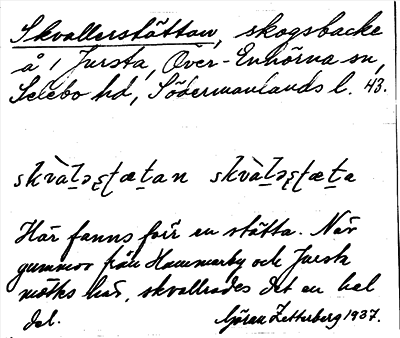 Skvallerstättan, skogsbacke
å 1 Jursta, Över-Enhörna sn,
Selebo hd, Södermanlands l. 43.
skvàləʂtætan skvàləʂtæta
Här fanns förr en stätta. När
gummor från Hammarby och Jursta
möttes här, skvallrades det en hel
del. Göran Zetterberg 1937.